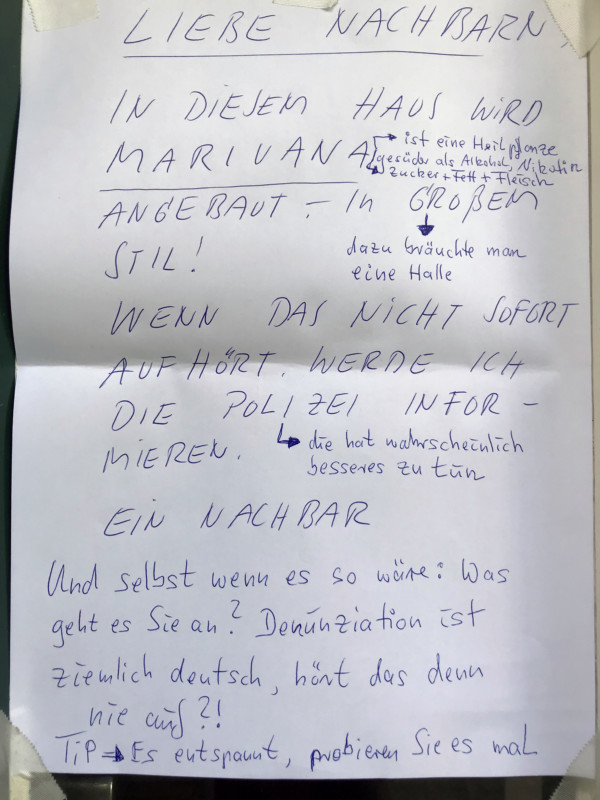 LIEBE NACHBARN,
IN DIESEM HAUS WIRD
MARIUANA
→ ist eine Heilpflanze
gesünder als Alkohol, Nikotin
→ Zucker + Fett + Fleisch
ANGEBAUT – IN GROßEM
STIL!
dazu bräuchte man
eine Halle
WENN DAS NICHT SOFORT
AUFHÖRT, WERDE ICH
DIE POLIZEI INFOR-
MIEREN.
→ die hat wahrscheinlich
besseres zu tun
EIN NACHBAR
Und selbst wenn es so wäre: Was
geht es Sie an? Denunziation ist
ziemlich deutsch, hört das denn
nie auf?!
TiP → Es entspannt, probieren Sie es mal